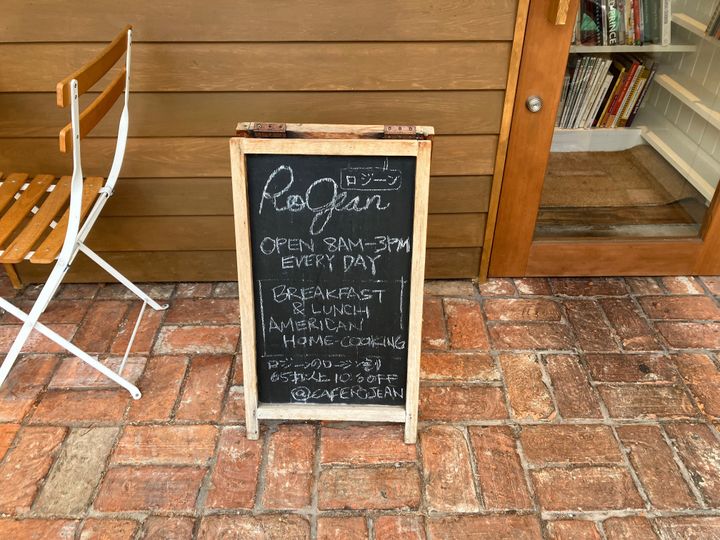 RoJean
ロジーン
OPEN 8AM-3PM
EVERY DAY
BREAKFAST
& LUNCH
AMERICAN
HOME-COOKING
ロジーンのロージン割
65才以上 10% OFF
@CAFEROJEAN